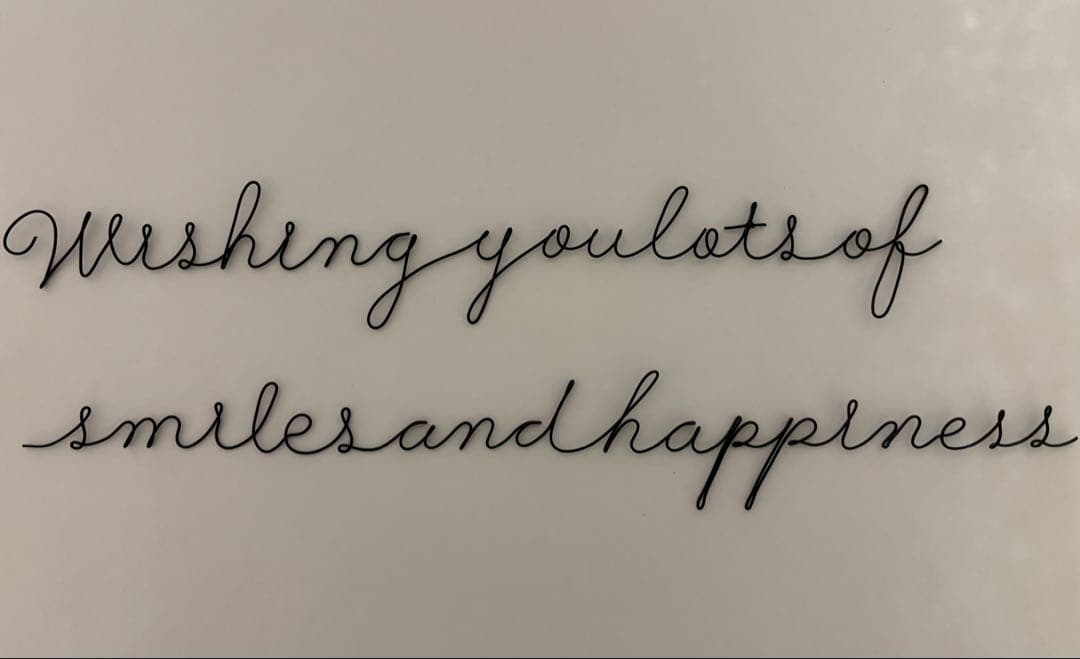 Wishing you lots of
smiles and happiness